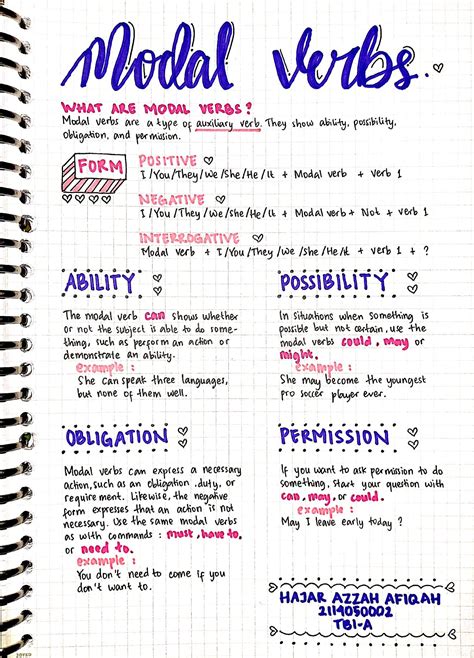 Modal Verbs.
WHAT ARE MODAL VERBS?
Modal verbs are a type of auxiliary verb. They show ability, possibility,
obligation, and permission.
FORM
POSITIVE
I/You/They/We/She/He/It + Modal verb + Verb 1
NEGATIVE
I/You/They/We/She/He/It + Modal verb + Not + Verb 1
INTERROGATIVE
Modal verb + I/You/They/We/She/He/It + verb 1 + ?
ABILITY
The modal verb can shows whether
or not the subject is able to do some-
thing, such as perform an action or
demonstrate an ability.
example :
She can speak three languages,
but none of them well.
POSSIBILITY
In situations when something is
possible but not certain, use the
modal verbs could, may or
might.
example :
She may become the youngest
pro soccer player ever.
OBLIGATION
Modal verbs can express a necessary
action, such as an obligation, duty, or
requirement. Likewise, the negative
form expresses that an action is not
necessary. Use the same modal verbs
as with commands : must, have to,
or need to.
example :
You don't need to come if you
don't want to.
PERMISSION
If you want to ask permission to do
something, start your question with
can, may, or could.
example :
May I leave early today ?
HAJAR AZZAH AFIQAH
2114050002
TBI-A